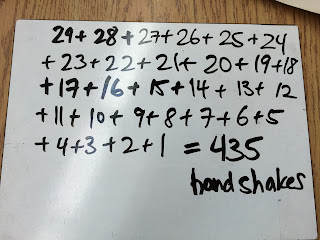 29+28+27+26+25+24
+23+22+21+20+19+18
+17+16+15+14+13+12
+11+10+9+8+7+6+5
+4+3+2+1 = 435
handshakes